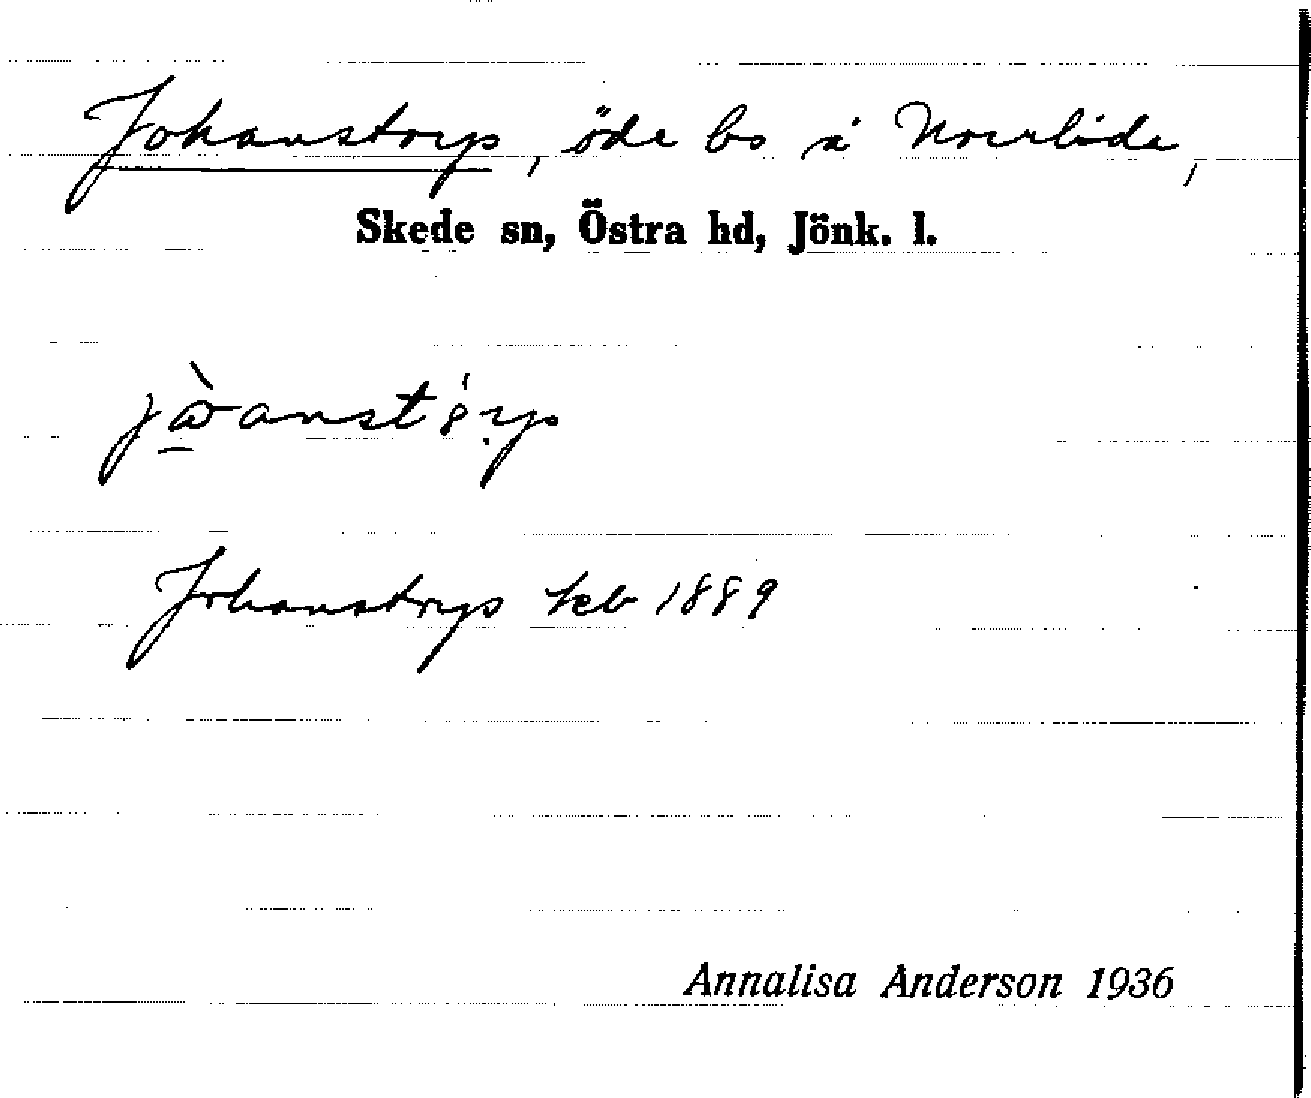 Johanstorp, öde bs å Norrlida,
Skede sn, Östra hd, Jönk. l.
Johanstorp 1889
Annalisa Anderson 1936